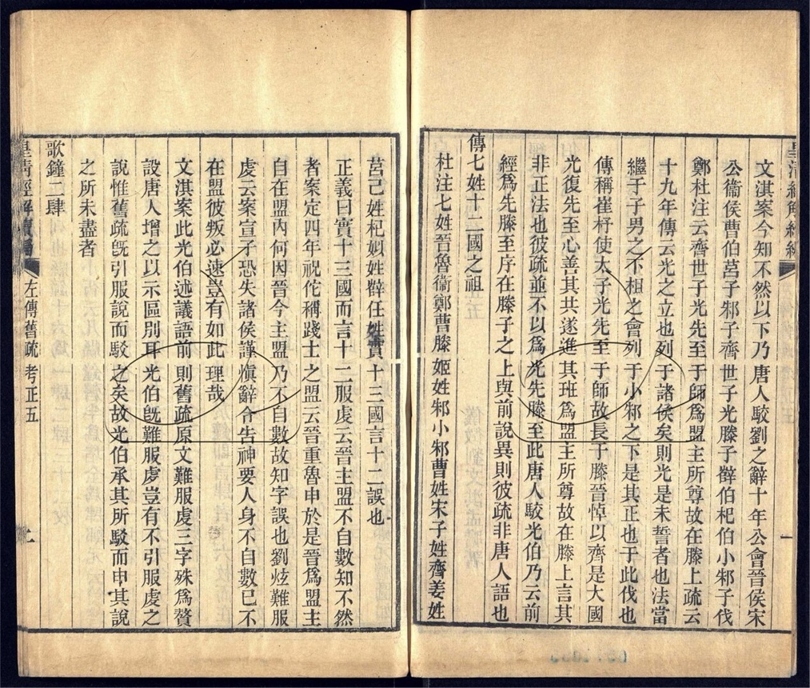 文淇案今知不然以下乃唐人駁劉之辭十年公會晉侯宋
公衞侯曹伯莒子邾子齊世子光滕子薛伯杞伯小邾子伐
鄭杜注云齊世子光先至于師爲盟主所尊故在滕上疏云
十九年傳云光之立也列于諸侯矣則光是未誓者也法當
繼子子男之不相之會列于小邾之下是其正也于此伐也
傳稱崔杼使大子光先至于師故長于滕晉悼以齊是大國
光復先至心善其共遂進其班爲盟主所尊故在滕上言其
非正法也彼疏並不以爲光先滕至此唐人駁光伯乃云前
經爲先滕至序在滕子之上與前說異則彼疏非唐人語也
傳七姓十二國之祖
杜注七姓晉魯衞鄭曹滕姬姓邾小邾曹姓宋子姓齊姜姓
莒己姓杞姒姓薛任姓實十三國言十二誤也
正義曰實十三國而言十二服虔云晉主盟不自數知不然
者案定四年祝佗稱踐土之盟云晉重魯申於是晉爲盟主
自在盟內何因晉今主盟乃不自數故知字誤也劉炫難服
虔云案宣子恐失諸侯謹愼辭令告神要人身不自數已不
在盟彼叛必速豈有如此理哉
文淇案此光伯述議語前則舊疏原文難服虔三字殊爲贅
設唐人增之以示區別耳光伯旣難服虔豈有不引服虔之
說惟舊疏旣引服說而駁之矣故光伯承其所駁而申其說
之所未盡者
歌鐘二肆
皇淸經解續編
左傳舊疏考正五
二